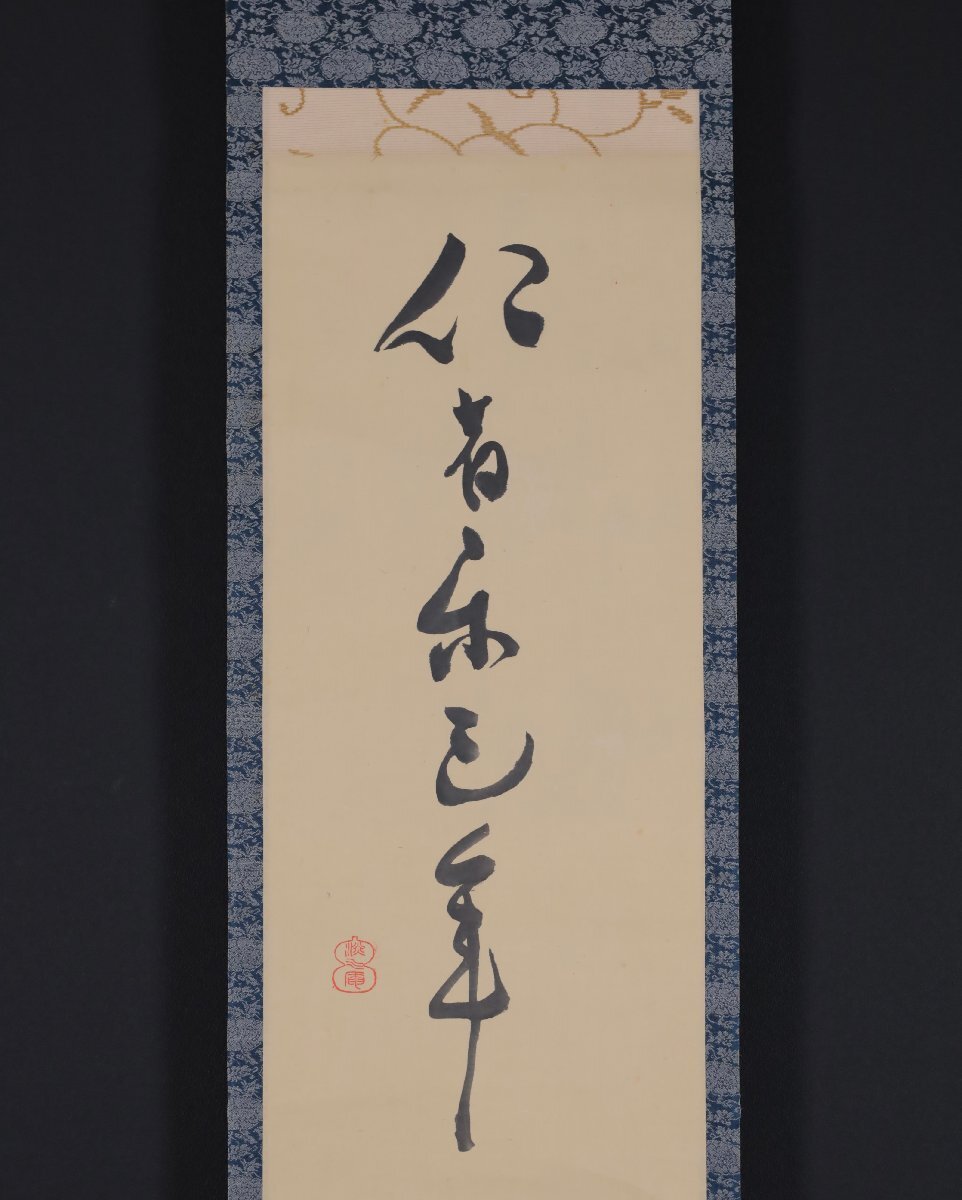 仁者樂年